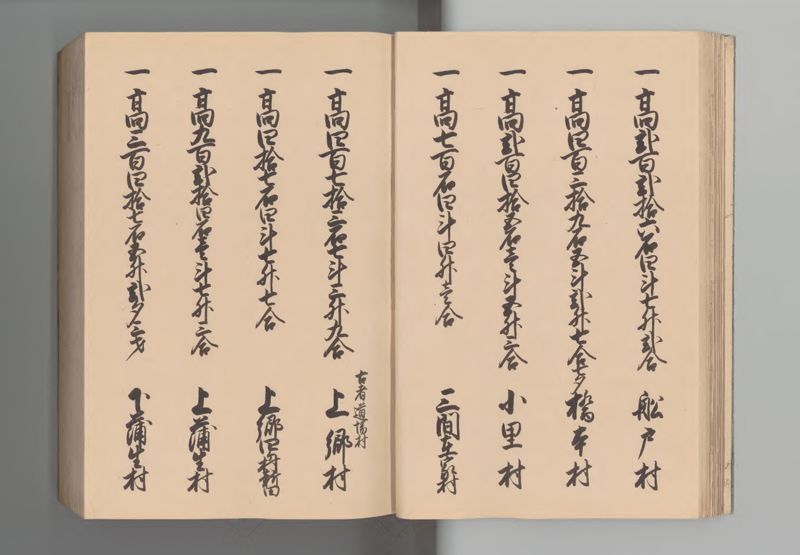 一高弐百弐拾六石四斗七升弐合 舩戸村
一高四百三拾九石五斗弐升七合七夕 橋本村
一高弐百四拾五石壱斗五升三合 小里村
一高七百石四斗四升壱合 三間在家村
古者道場村
一高四百七拾三石七斗三升九合 上郷村
一高四拾七石四斗七升七合 上郷四村新田
一高九百弐拾四石壱斗七升三合 上蒲生村
一高三百四拾七石五升弐夕三才 下蒲生村